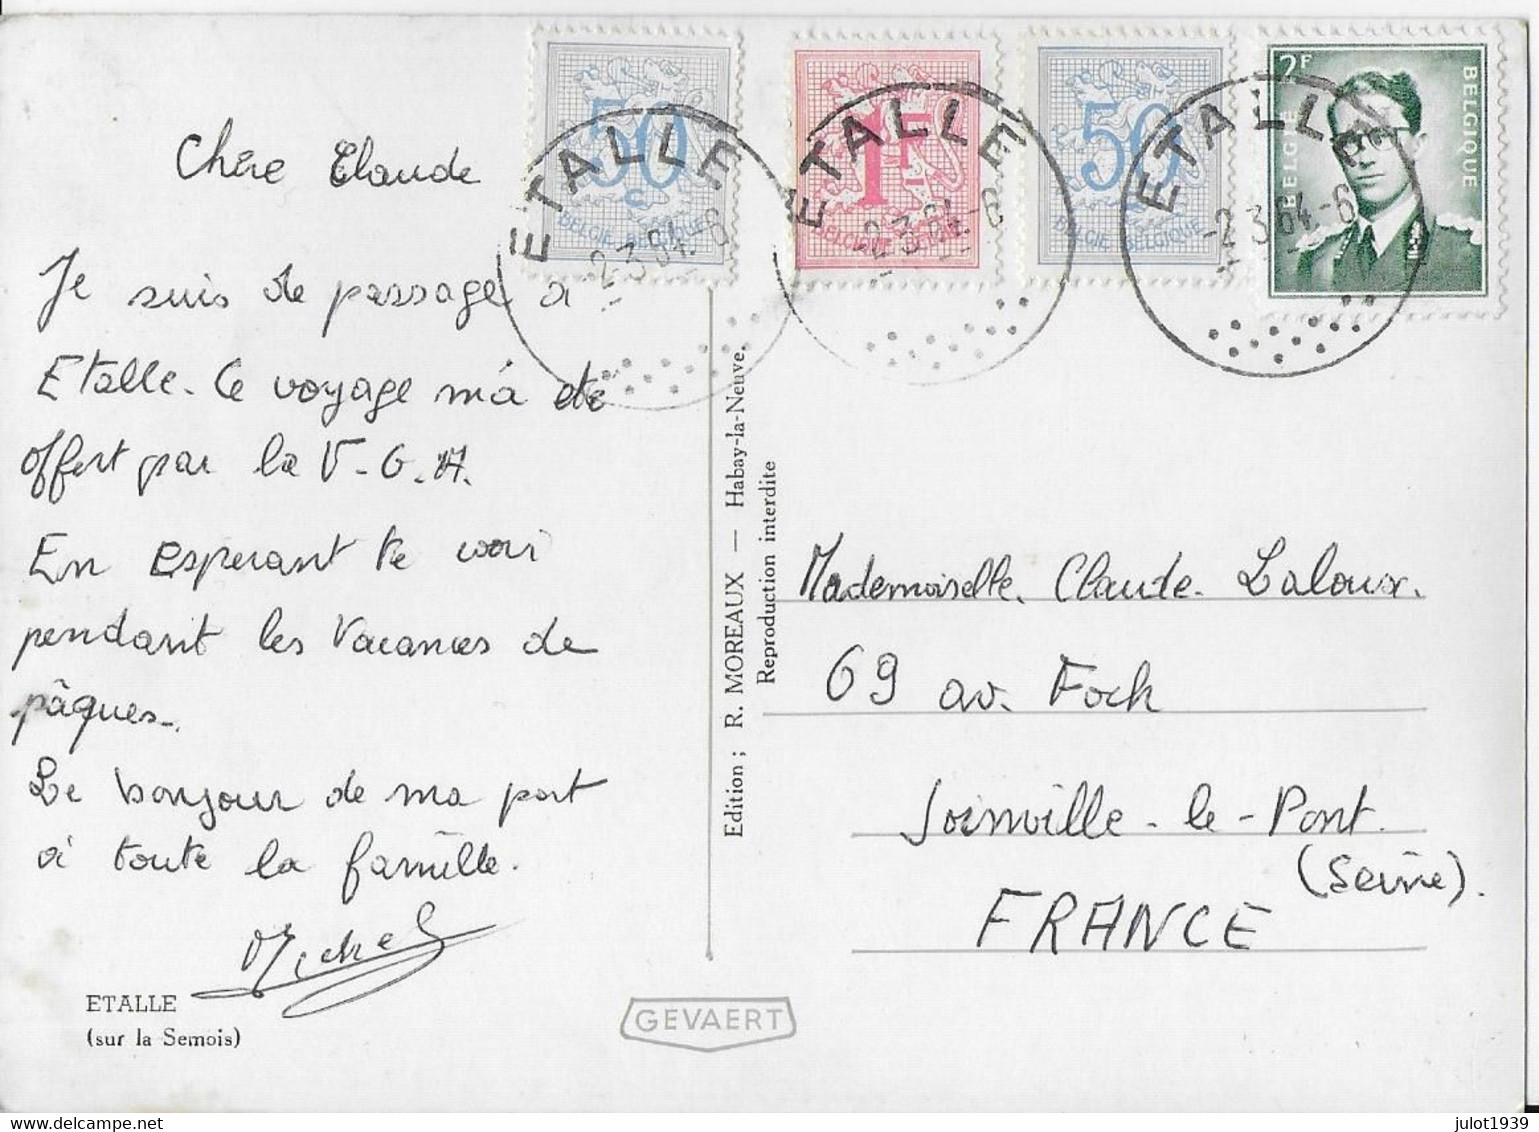 50
c
BELGIE BELGIQUE
1F
BELGIQUE BELGIE
50
BELGIE BELGIQUE
2F
BELGIE
BELGIQUE
ETALLE
-2.3.64.-6
ETALLE
-2.3.64.-6
ETALLE
-2.3.64.-6
Chère Claude
Je suis de passage à
Etalle. Ce voyage m'a été
offert par la V-G.A.
En esperant te voir
pendant les Vacances de
pâques.
Le bonjour de ma part
à toute la famille.
Michel
ETALLE
(sur la Semois)
Edition ; R. MOREAUX — Habay-la-Neuve.
Reproduction interdite
GEVAERT
Mademoiselle. Claude. Laloux.
69 av. Foch
Joinville-le-Pont.
(Seine).
FRANCE
julot1939